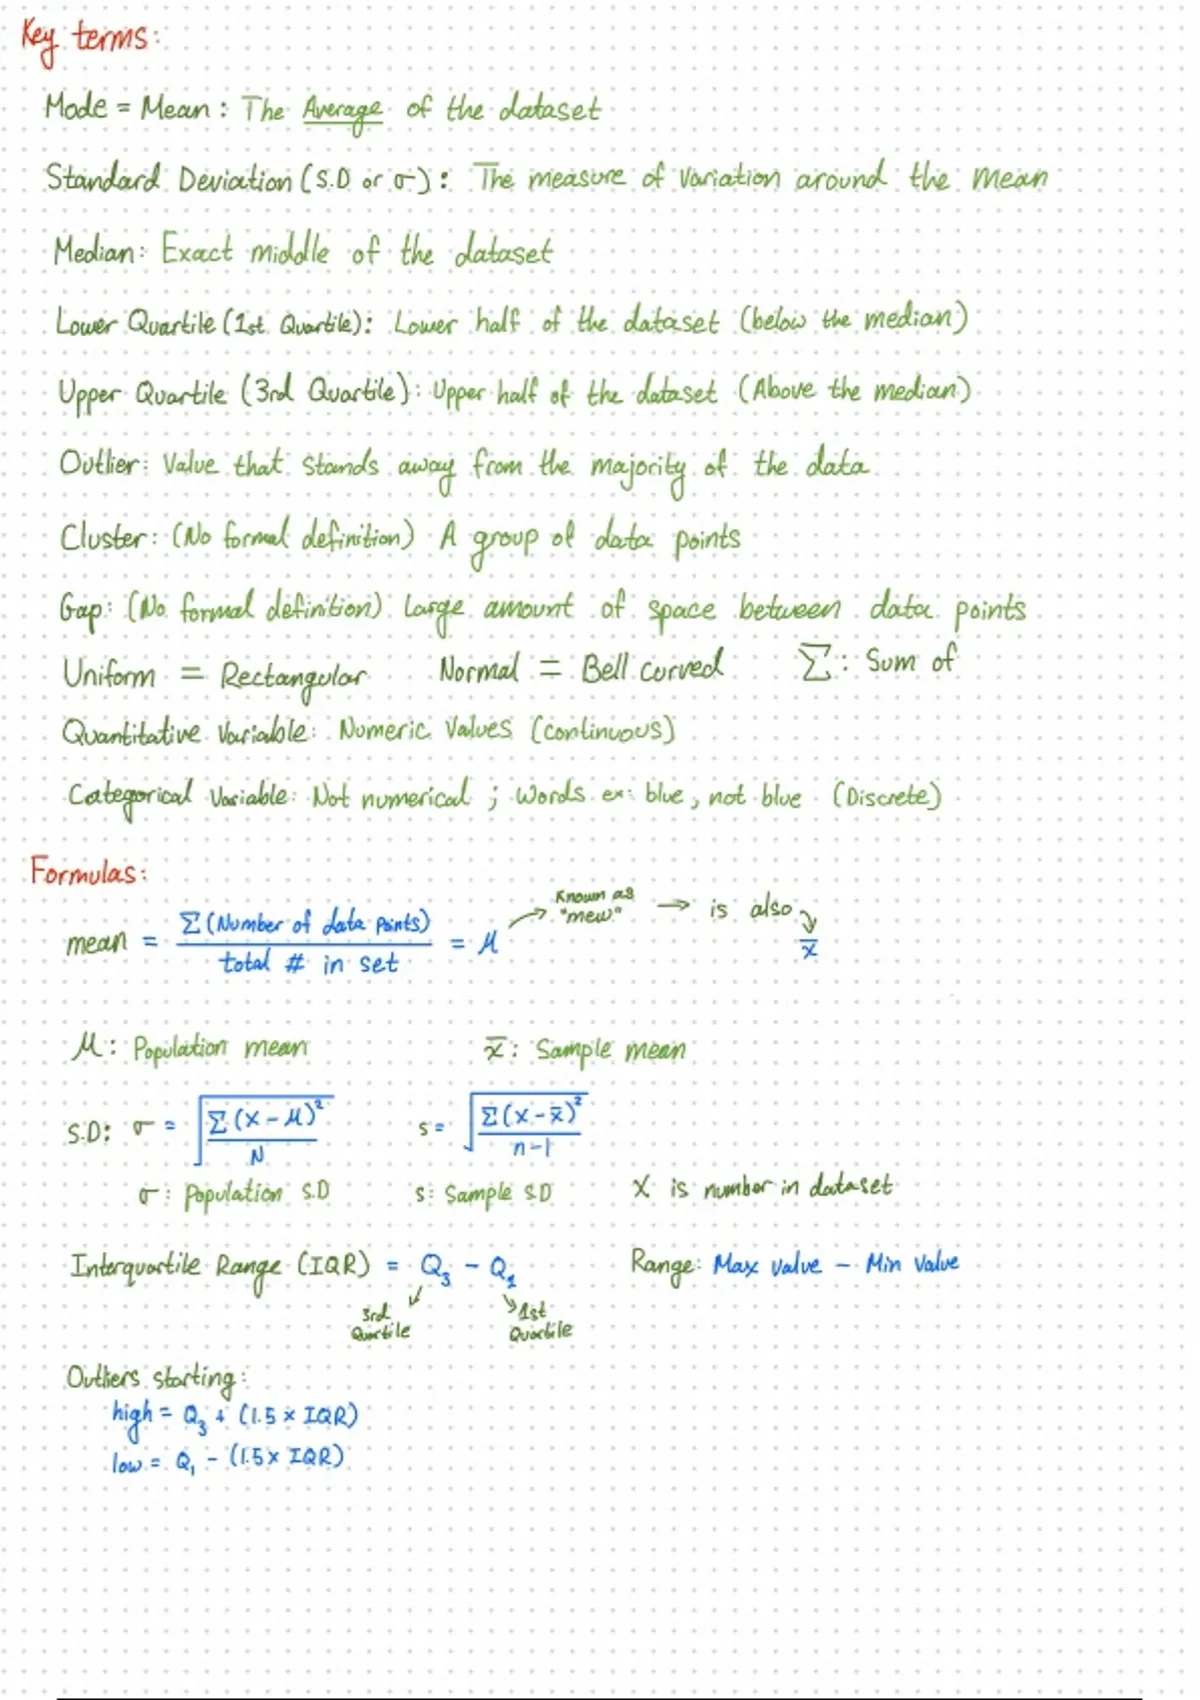 Key terms:
Mode = Mean: The Average of the dataset
Standard Deviation (S.D or σ): The measure of variation around the mean
Median: Exact middle of the dataset
Lower Quartile (1st Quartile): Lower half of the dataset (below the median)
Upper Quartile (3rd Quartile): Upper half of the dataset (Above the median)
Outlier: Value that stands away from the majority of the data
Cluster: (No formal definition) A group of data points
Gap: (No formal definition) Large amount of space between data points
Uniform = Rectangular Normal = Bell curved Σ: Sum of
Quantitative Variable: Numeric Values (continuous)
Categorical Variable: Not numerical; Words ex: blue, not blue (Discrete)
Formulas:
mean = Σ(Number of data points) / total # in set = μ → Known as "mew" → is also → x̄
μ: Population mean x̄: Sample mean
S.D: σ = √(Σ(x-μ)² / N) s = √(Σ(x-x̄)² / n-1)
σ: Population S.D s: Sample S.D X is number in dataset
Interquartile Range (IQR) = Q₃ - Q₁ Range: Max value - Min value
3rd Quartile 1st Quartile
Outliers starting:
high = Q₃ + (1.5 × IQR)
low = Q₁ - (1.5 × IQR)